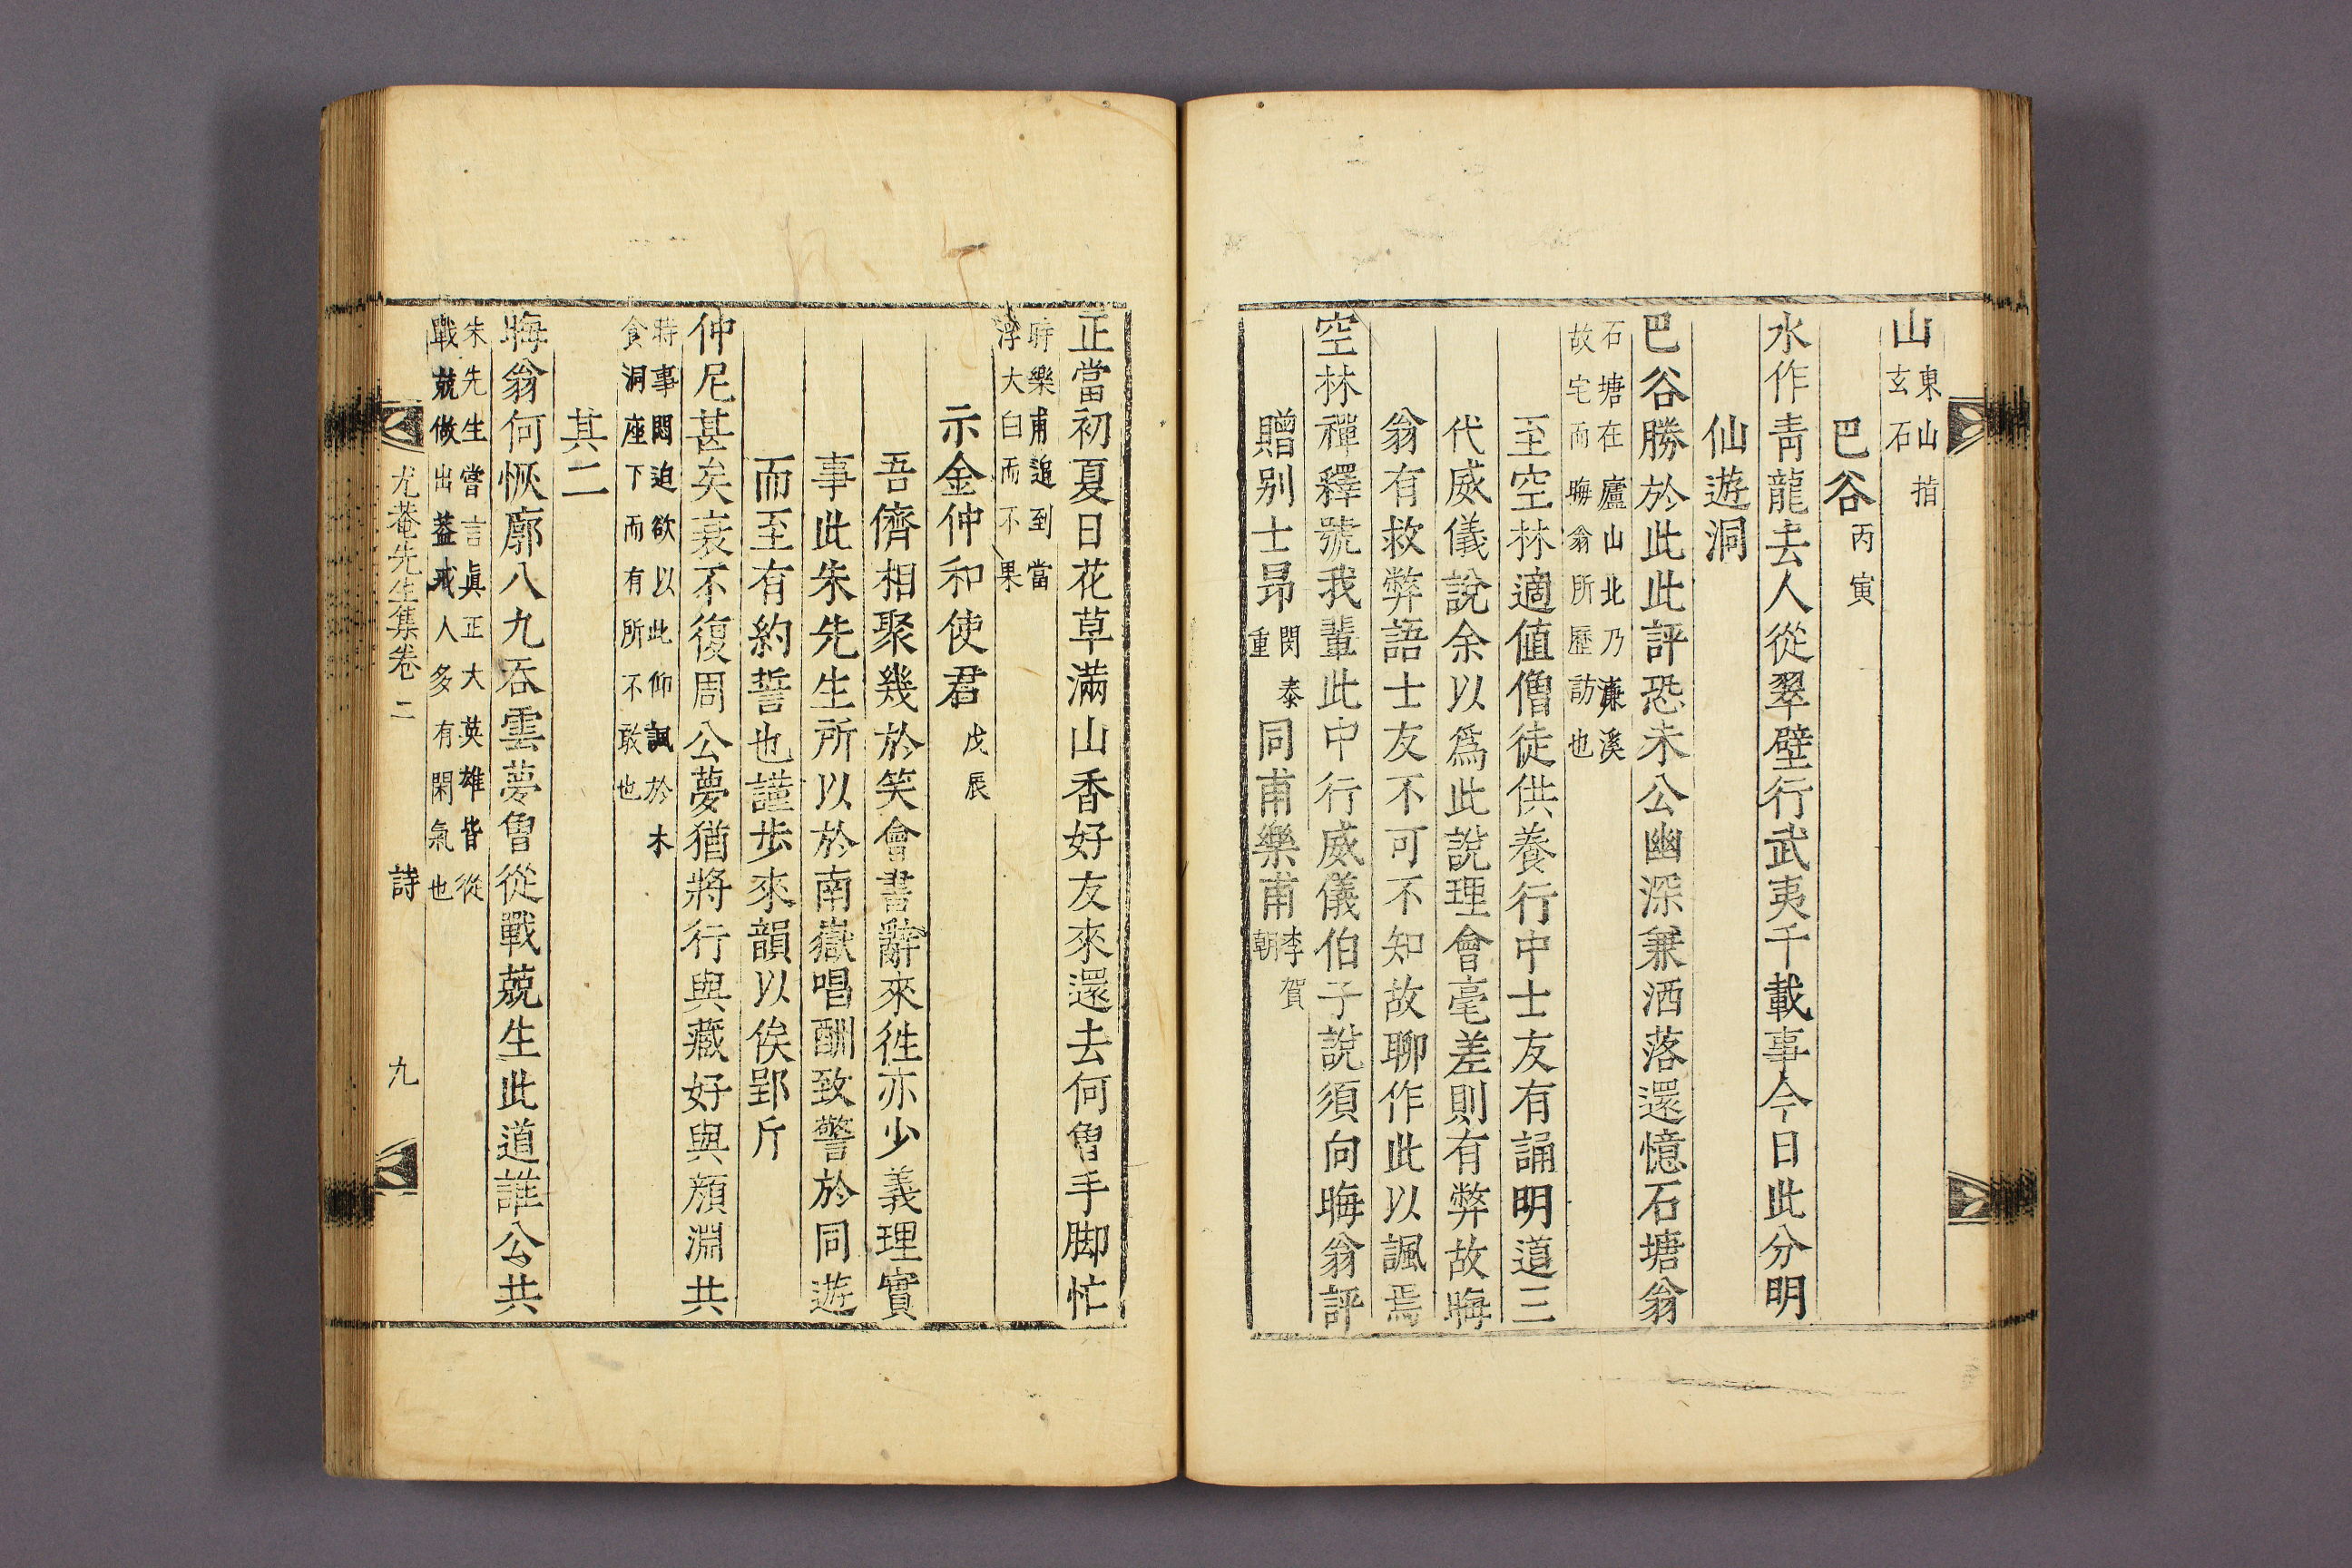 山東山指
玄石
巴谷丙寅
水作靑龍去人從翠壁行武夷千載事今日此分明
仙遊洞
巴谷勝於此此評恐未公幽深兼洒落還憶石塘翁
石塘在廬山北乃濂溪
故宅而晦翁所歷訪也
至空林適値僧徒供養行中士友有誦明道三
代威儀說余以爲此說理會毫差則有弊故晦
翁有救弊語士友不可不知故聊作此以諷焉
空林禪釋號我輩此中行威儀伯子說須向晦翁評
贈别士昻閔泰重同甫樂甫李賀朝
正當初夏日花草滿山香好友來還去何曾手脚忙
時樂甫追到當
浮大白而不果
示金仲和使君戊辰
吾儕相聚幾於笑會書辭來徃亦少義理實
事此朱先生所以於南嶽唱酬致警於同遊
而至有約誓也謹步來韻以俟郢斤
仲尼甚矣衰不復周公夢猶將行與藏好與顔淵共
時事悶迫欲以此仰諷於木
食洞座下而有所不敢也
其二
晦翁何恢廓八九呑雲夢曾從戰兢生此道誰公共
朱先生嘗言眞正大英雄皆從
戰兢做出蓋戒人多有閑氣也
尤菴先生集卷二 詩 九